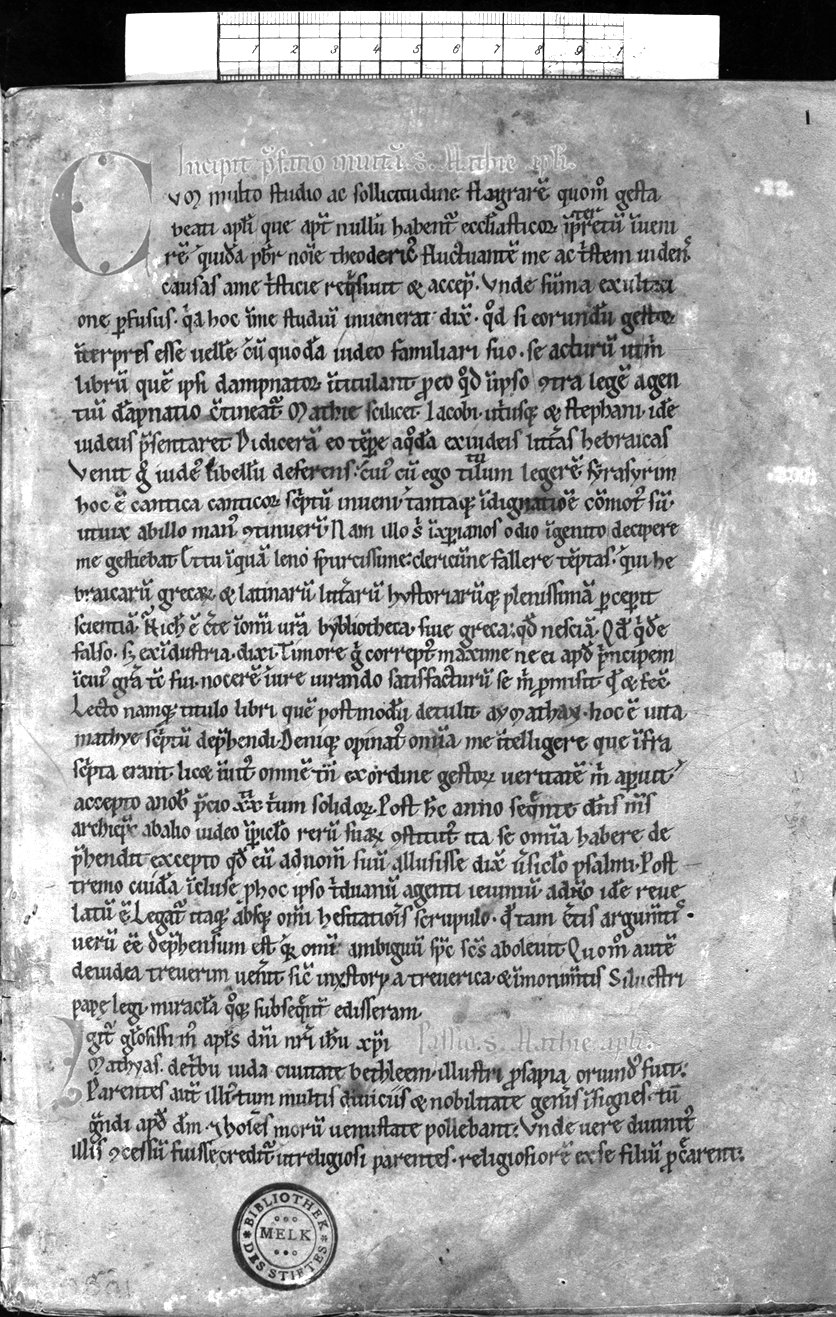 1 2 3 4 5 6 7 8 9 1
1
Incipit p̄fatio
Cvm multo studio ac sollicitudine flagrarē quom̄ gesta
beati apl̄i que apt̄ nullū habent̄ eccl̄iasticor̄ īpretū īueni
rē q̄idā pb̄r noīe theoderic᷒ fluctuantē me ac t̄stem uidens
causas ame t̄sticie reqisiuit & accep̄. Vnde sūma exultati
one ꝑfusus. q̄a hoc īme studiū inuenerat dix̄. qd̄ si eorundū gestor̄
īterpres esse uellē. cū quodā iudeo familiari suo. se acturū ut m̄
librū quē ipsi dampnator̄ ītitulant ꝓeo qd̄ īipso ꝯtra legē agen
tiū dāpnatio ꝯtineat̄ Mathie scilicet. Iacobi. & Stephani. idē
iudeus p̄sentaret Didicerā eo tēpe aqdā exiudeis litt̄as hebraicas
Venit g̊ iude᷒ libellū deferens. cui᷒ cū ego titulum legerē
hoc ē cantica canticor̄ sc̄ptū inueni. tantaq; īdignatiōe cōmot᷒ sū.
utuix abillo man᷒ ꝯtinuerī Nam illo s̄ īxpianos odio īgenito decipere
me gestiebat. Ettu īquā leno spurcissime. clericūne fallere tēptas. qui he
braicarū grecar̄ & latinarū litt̄arū hystoriarūq; plenissimā ꝑcepit
scientiā. Nich̄ ē c̄te īom̄i ur̄a bybliotheca. siue greca. qd̄ nesciā. Qd̄ qidē
falso. sꝫ exīdustria. dixi. Timore g̊ correpti᷒ maxime ne ei apd̄ p̄ncipem
īcui᷒ gr̄a tc̄ fui. nocerē iure iurando satisfacturū se m̄ promisit q̄ & fec̄.
Lecto namq; titulo libri quē postmodū detulit ay mathay. hoc ē uita
mathye sc̄ptū dep̄hendi. Deniq; opinat᷒ om̄ia me ītelligere que īfra
sc̄pta erant. lic& īuit᷒ omnē tn̄ exordine gestor̄ ueritatē m̄ aperuit
accepto anob᷒ p̄cio xx t̄um solidor̄. Post hc̄ anno seqnte dn̄s m̄s
archiep̄c abalio iudeo ꝑiclo rerū suar̄ ꝯstitut᷒ ita se omīa habere de
p̄hendit excepto qd̄ eū ad nom̄ suū allusisse dix̄ ūsiclo psalmi. Post
tremo cuidā īcluse ꝓhoc ipso t̄duanū agenti ieiuniū. adiuīo idē reue
latū ē. Legat̄ itaq; absq; om̄i hesitatiōis scrupulo. qd tam c̄tis argum̄tis
uerū eē dep̄hensum est q̄ omē ambiguū spc̄ sc̄s aboleuit Quom̄ autē
deiudea treuerim uenit sic̄ inhystorya treuerica. & īmonum̄tis Siluestri
pape legi. miracl̄a qq; subseqnt̄ edisseram.
Igit̄ gl̄osissim᷒ apl̄s dn̄i nr̄i ih̄u xpi Passio. s. Mathie apl̄i.
Mathyas. detbu iuda ciuitate bethleem. illustri ꝓsapia oriund᷒ fuit.
Parentes aut̄ illi᷒ tum multis diuiciis & nobilitate generis īsignes. tū
g̊ndi apd̄ dm̄ & hoīes morū uenustate pollebant. Vnde uere diuinit᷒
illis ꝯcessū fuisse credit̄ ut religiosi parentes. religiosiorē exse filiū ꝓcrearent.
BIBLIOTHEK
MELK
DES STIFTES